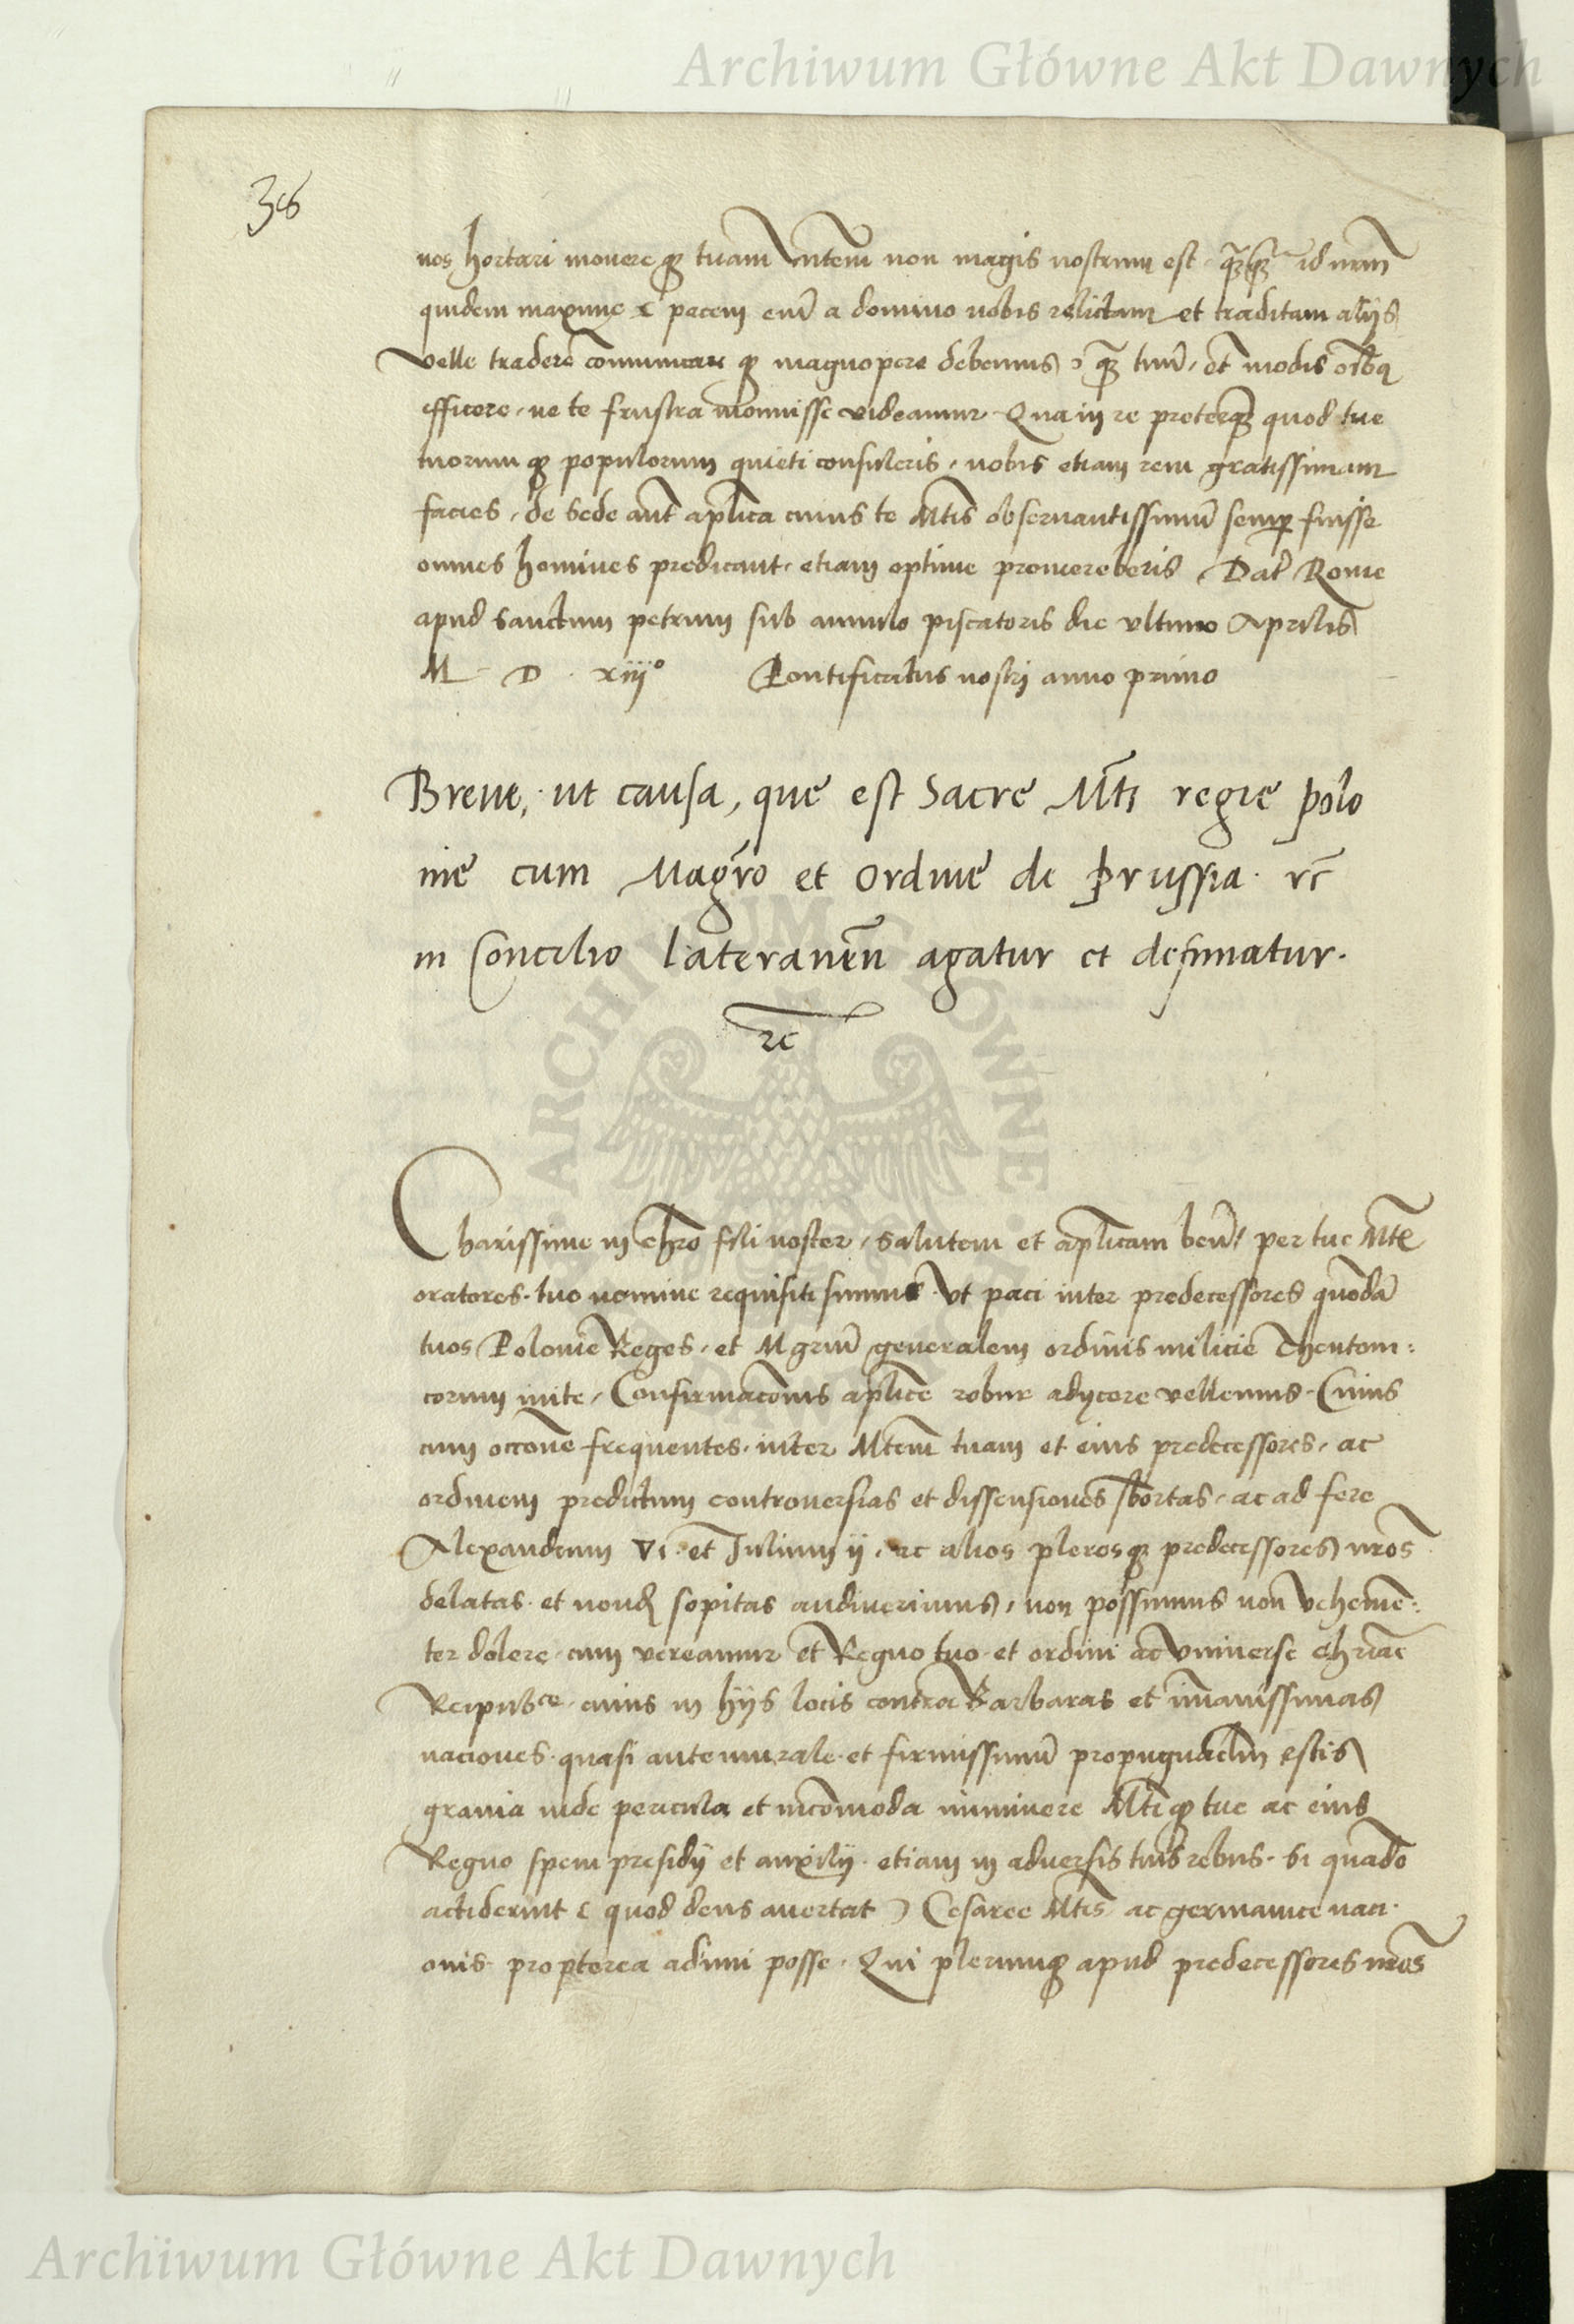 Archiwum Główne Akt Dawnych
38
nos hortari monere qȝ tuam Mtem non magis nostrum est qȝqȝ id nrm
quidem maxime ( pacem enī a domino nobis relictam et traditam alijs
velle tradere cōmunicare qȝ magnopere debemus ) qȝ tuū, et modis oībq
efficere, ne te frustra monuisse videamur. Qua in re preterqȝ quod tue
tuorum qȝ populorum quieti consuleris, nobis etiam rem gratissimam
facies, de Sede aut aplica cuius te Mtis observantissimū semp fuisse
omnes homines predicant, etiam optime promereberis. Dat Rome
apud sanctum petrum sub annulo piscatoris die ultimo Aprilis
M D xiijº Pontificatus nostri anno primo
Breve, ut causa, que est Sacre Mtis regie polo
nie cum Magro et Ordine de prussia. rc
in Concilio lateraneñ agatur et definatur.
rc
Charissime in chro fili noster, salutem et aplicam ben, per tue Mtis
oratores tuo nomine requisiti sumus. Vt paci inter predecessores quondā
tuos Polonie Reges, et Mgrum generalem ordinis milicie Theutoni:
corum inite, Confirmacōnis aplice robur adijcere vellemus. Cuius
cum occone frequentes, inter Mtem tuam et eius predecessores, ac
ordinem predictum controversias et dissensiones obortas, ac ad fere
Alexandrum VI. et Julium ij, ac alios pleros qȝ predecessores nros
delatas et nondū sopitas audiverimus, non possumus non vehemē:
ter dolere, cum vereamur et Regno tuo et ordini ac Universe chriane
Reipublce, cuius in hijs locis contra Barbaras et īmanissimas
naciones quasi antemurale et firmissimū propugnaclm estis
gravia inde pericula et incōmoda imminere Mtiqȝ tue ac eius
Regno spem presidij et auxilij etiam in adversis tuis rebus. Si quādo
acciderint ( quod deus avertat ) Cesaree Mtis ac germanice naci
onis propterea adimi posse. Qui plerumqȝ apud predecessores nros
Archiwum Główne Akt Dawnych